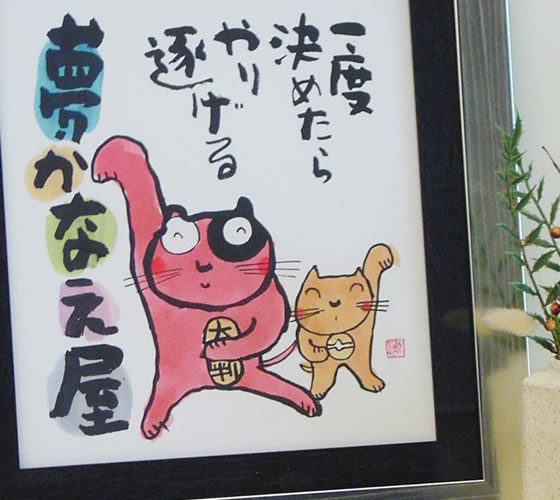 一度
決めたら
やり
遂げる
夢かなえ屋
大判